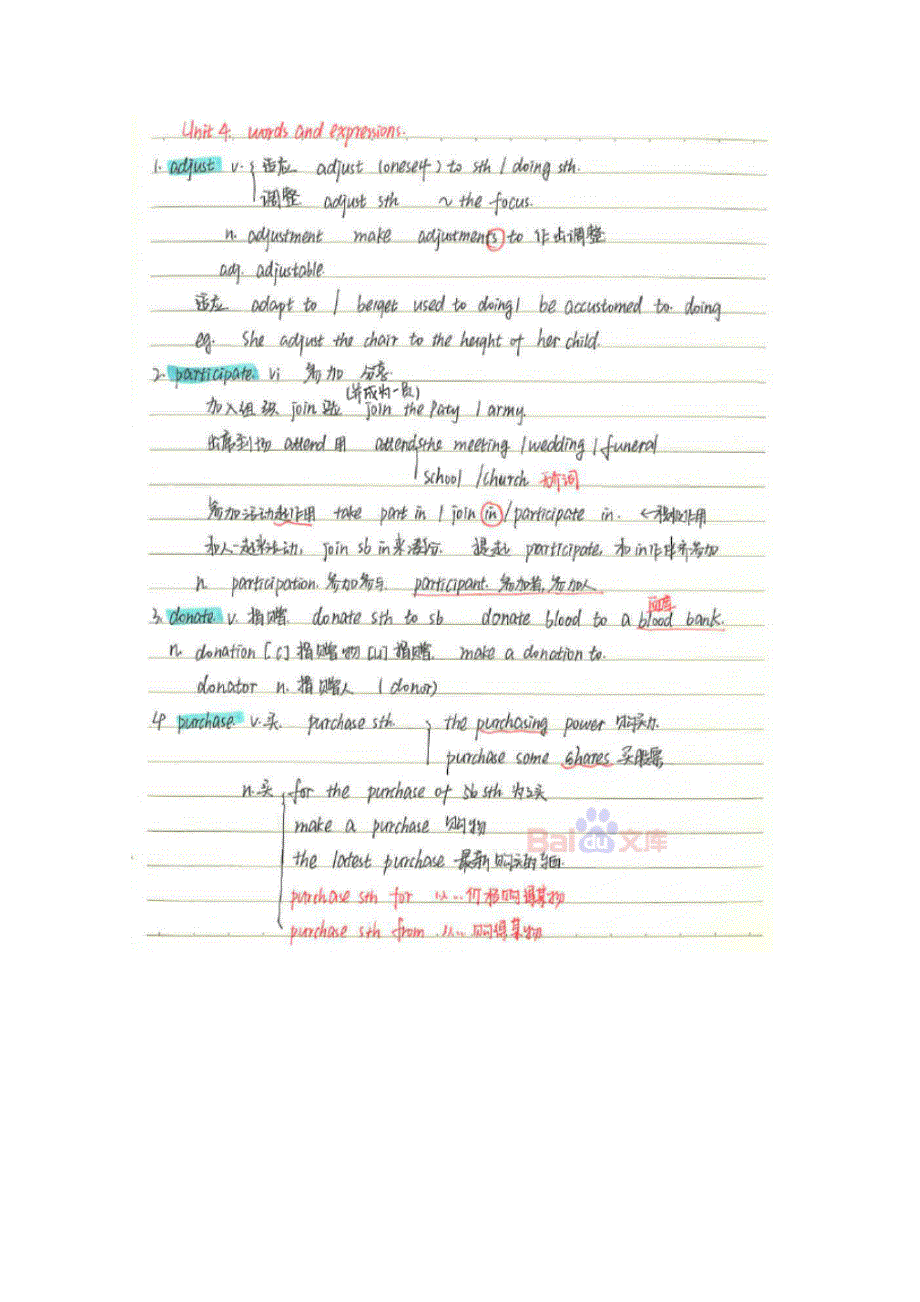 Unit 4. words and expressions.
1. adjust v. { 适应 adjust (oneself) to sth / doing sth.
调整 adjust sth ~ the focus.
n. adjustment make adjustments to 作出调整
adj. adjustable.
适应 adapt to / be/get used to doing / be accustomed to doing
eg. She adjust the chair to the height of her child.
2. participate vi 参加 分享
(并成为一员)
加入组织 join join the Paty / army.
出席到场 attend 用 attend the meeting / wedding / funeral
school / church 无介词
参加活动起作用 take part in / join in / participate in. ← 积极作用
和人一起来活动, join sb in 来 提起 participate, 和in作伴齐参加
n participation 参加参与. participant 参加者, 参加人
血库
3. donate v. 捐赠 donate sth to sb donate blood to a blood bank.
n. donation [C] 捐赠物 [U] 捐赠. make a donation to.
donator n. 捐赠人 (donor)
4 purchase v. 买. purchase sth. the purchasing power 购买力
purchase some shares 买股票
n. 买 for the purchase of sb sth 为 买
make a purchase 购物
the latest purchase 最新购买的东西
purchase sth for 以...价格购得某物
purchase sth from 从... 购得某物
Bai du 文库